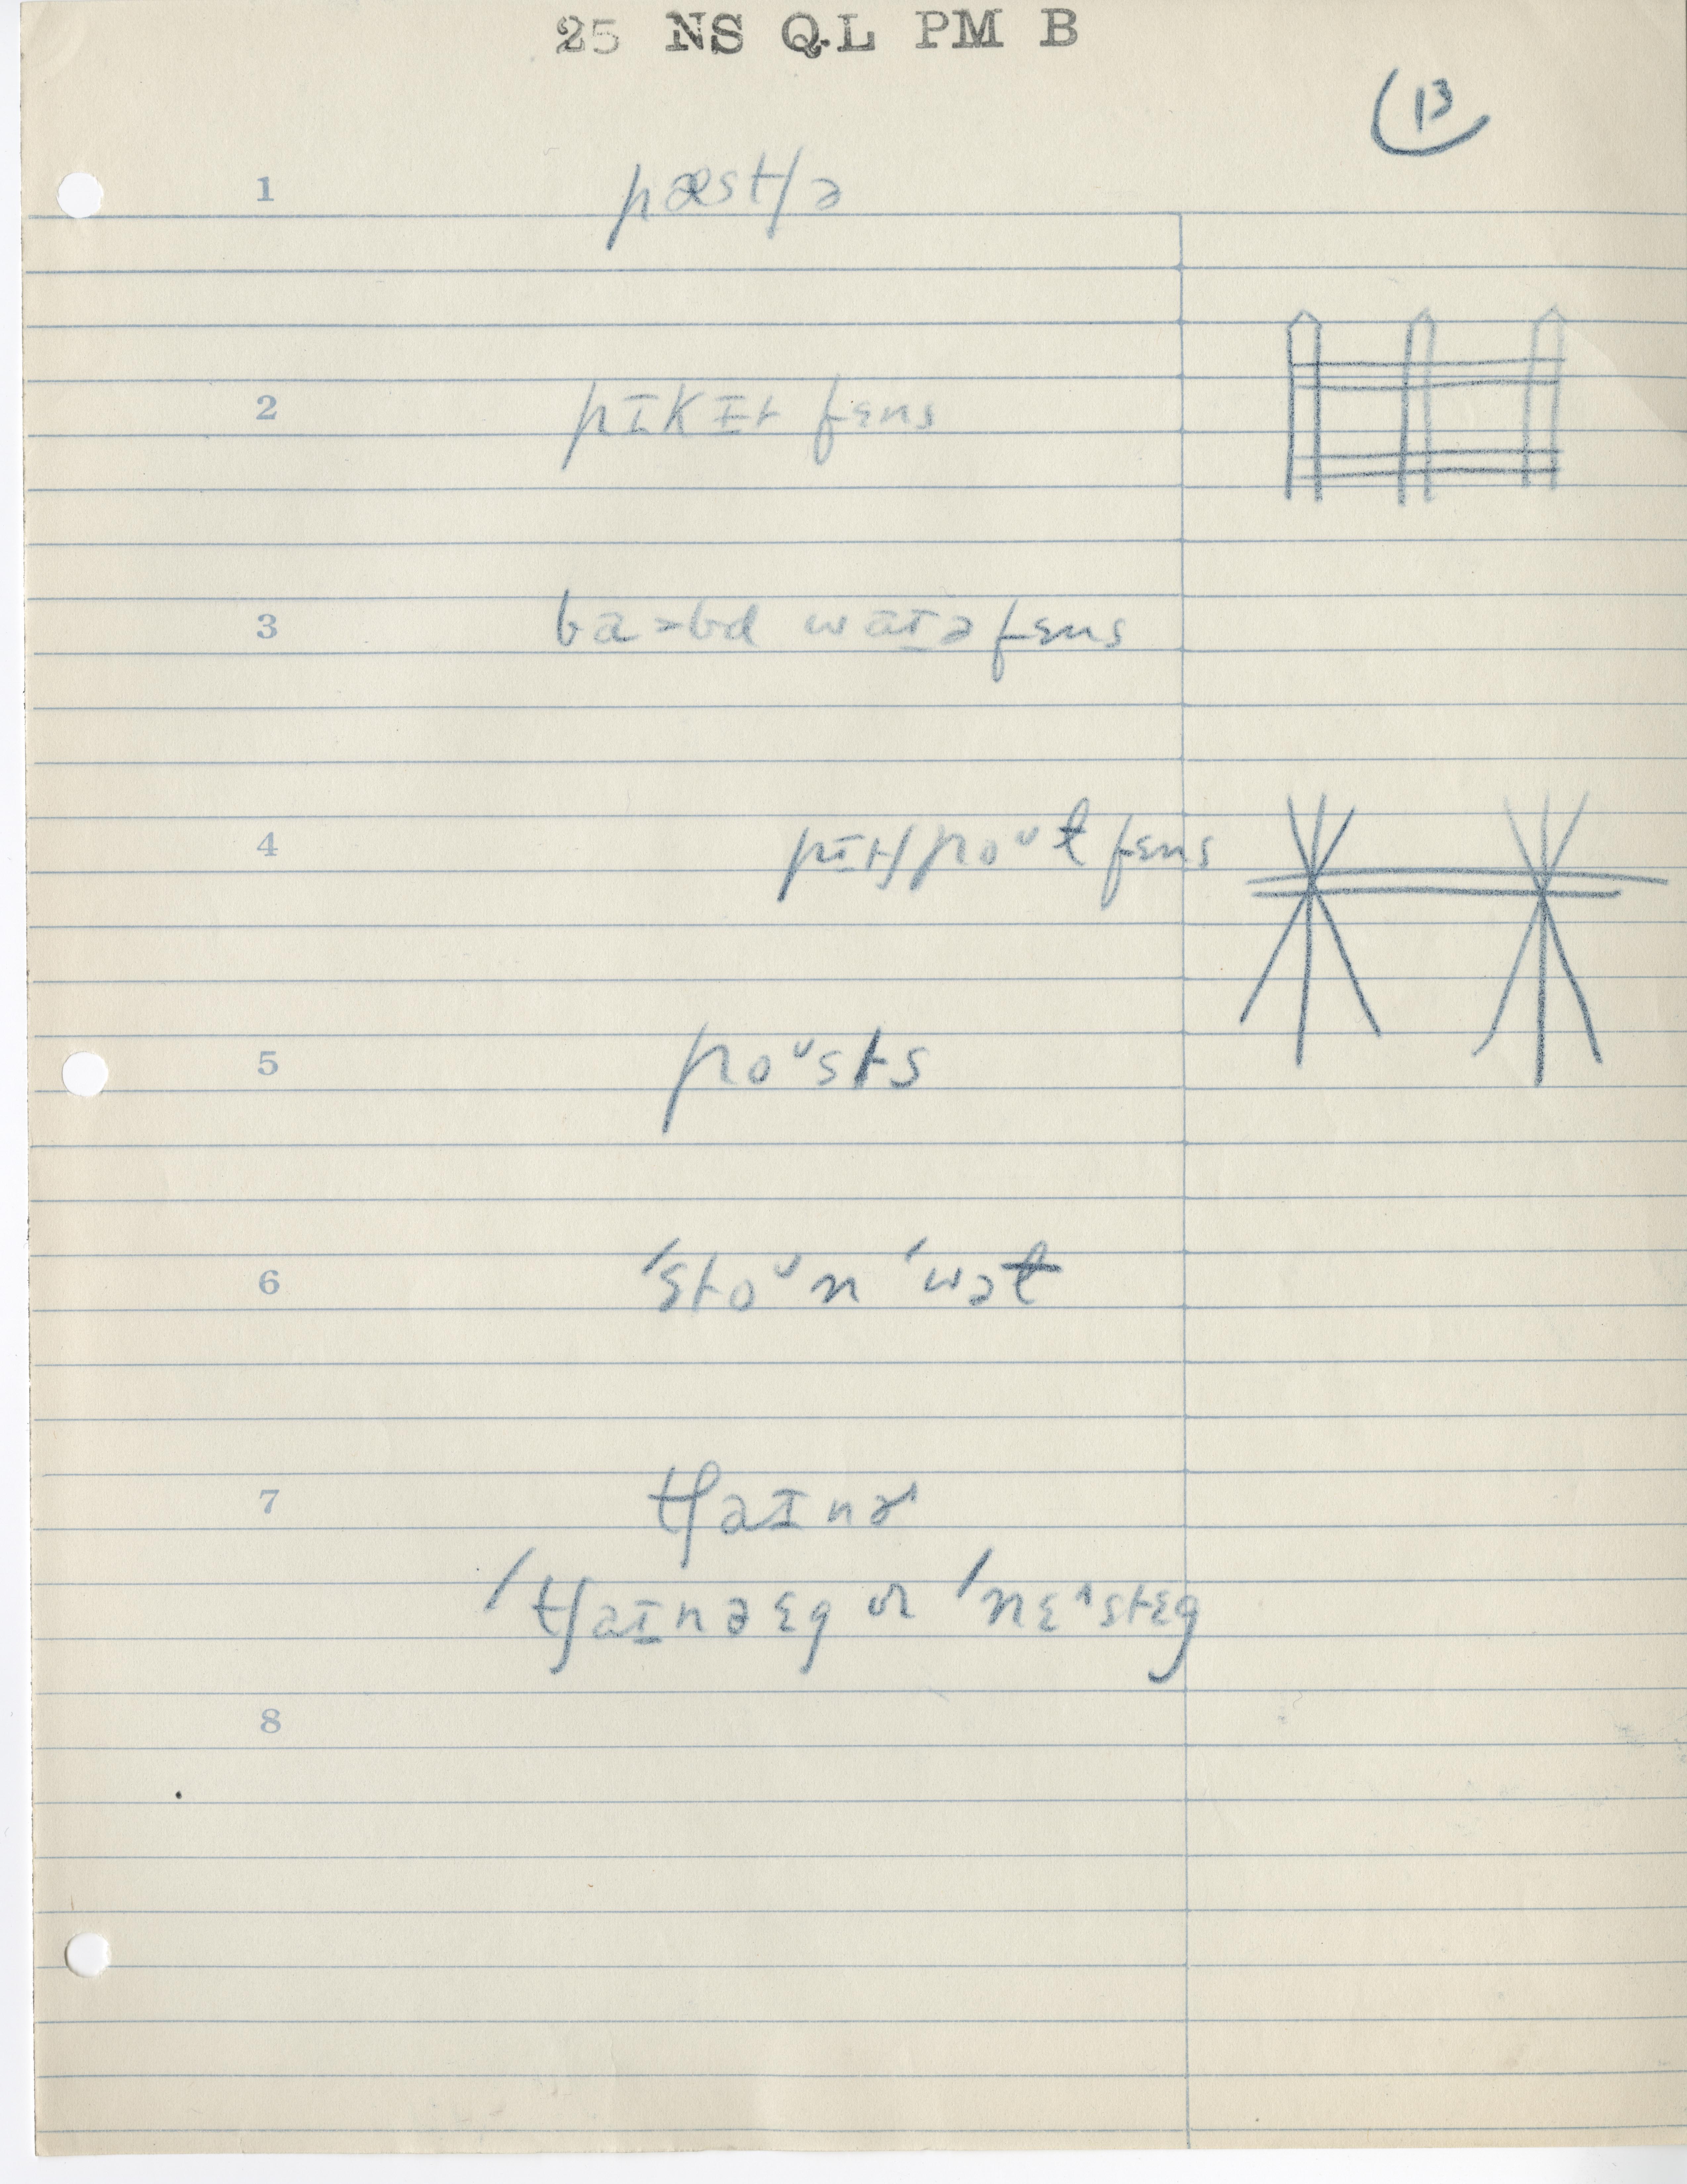 25 NS QL PM B
13
1 pæstʃɚ
2 pɪkɪt fɛns
3 baɚbd waɪɚ fɛns
4 pɪtʃpoᵘl fɛns
5 poᵘsts
6 ˈstoᵘn ˈwɔl
7 tʃaɪnə
ˈtʃaɪnə ɛg or ˈnɛ˄st ɛg
8